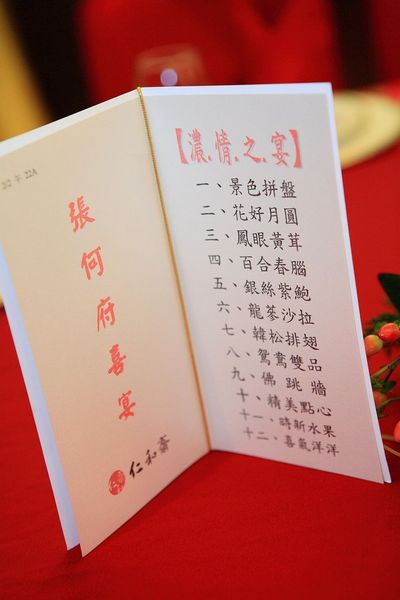 2/2 午 22A
張何府喜宴
仁和齋
【濃．情．之．宴】
一、景色拼盤
二、花好月圓
三、鳳眼黃茸
四、百合春腦
五、銀絲紫鮑
六、龍蔘沙拉
七、韓松排翅
八、鴛鴦雙品
九、佛跳牆
十、精美點心
十一、時新水果
十二、喜氣洋洋